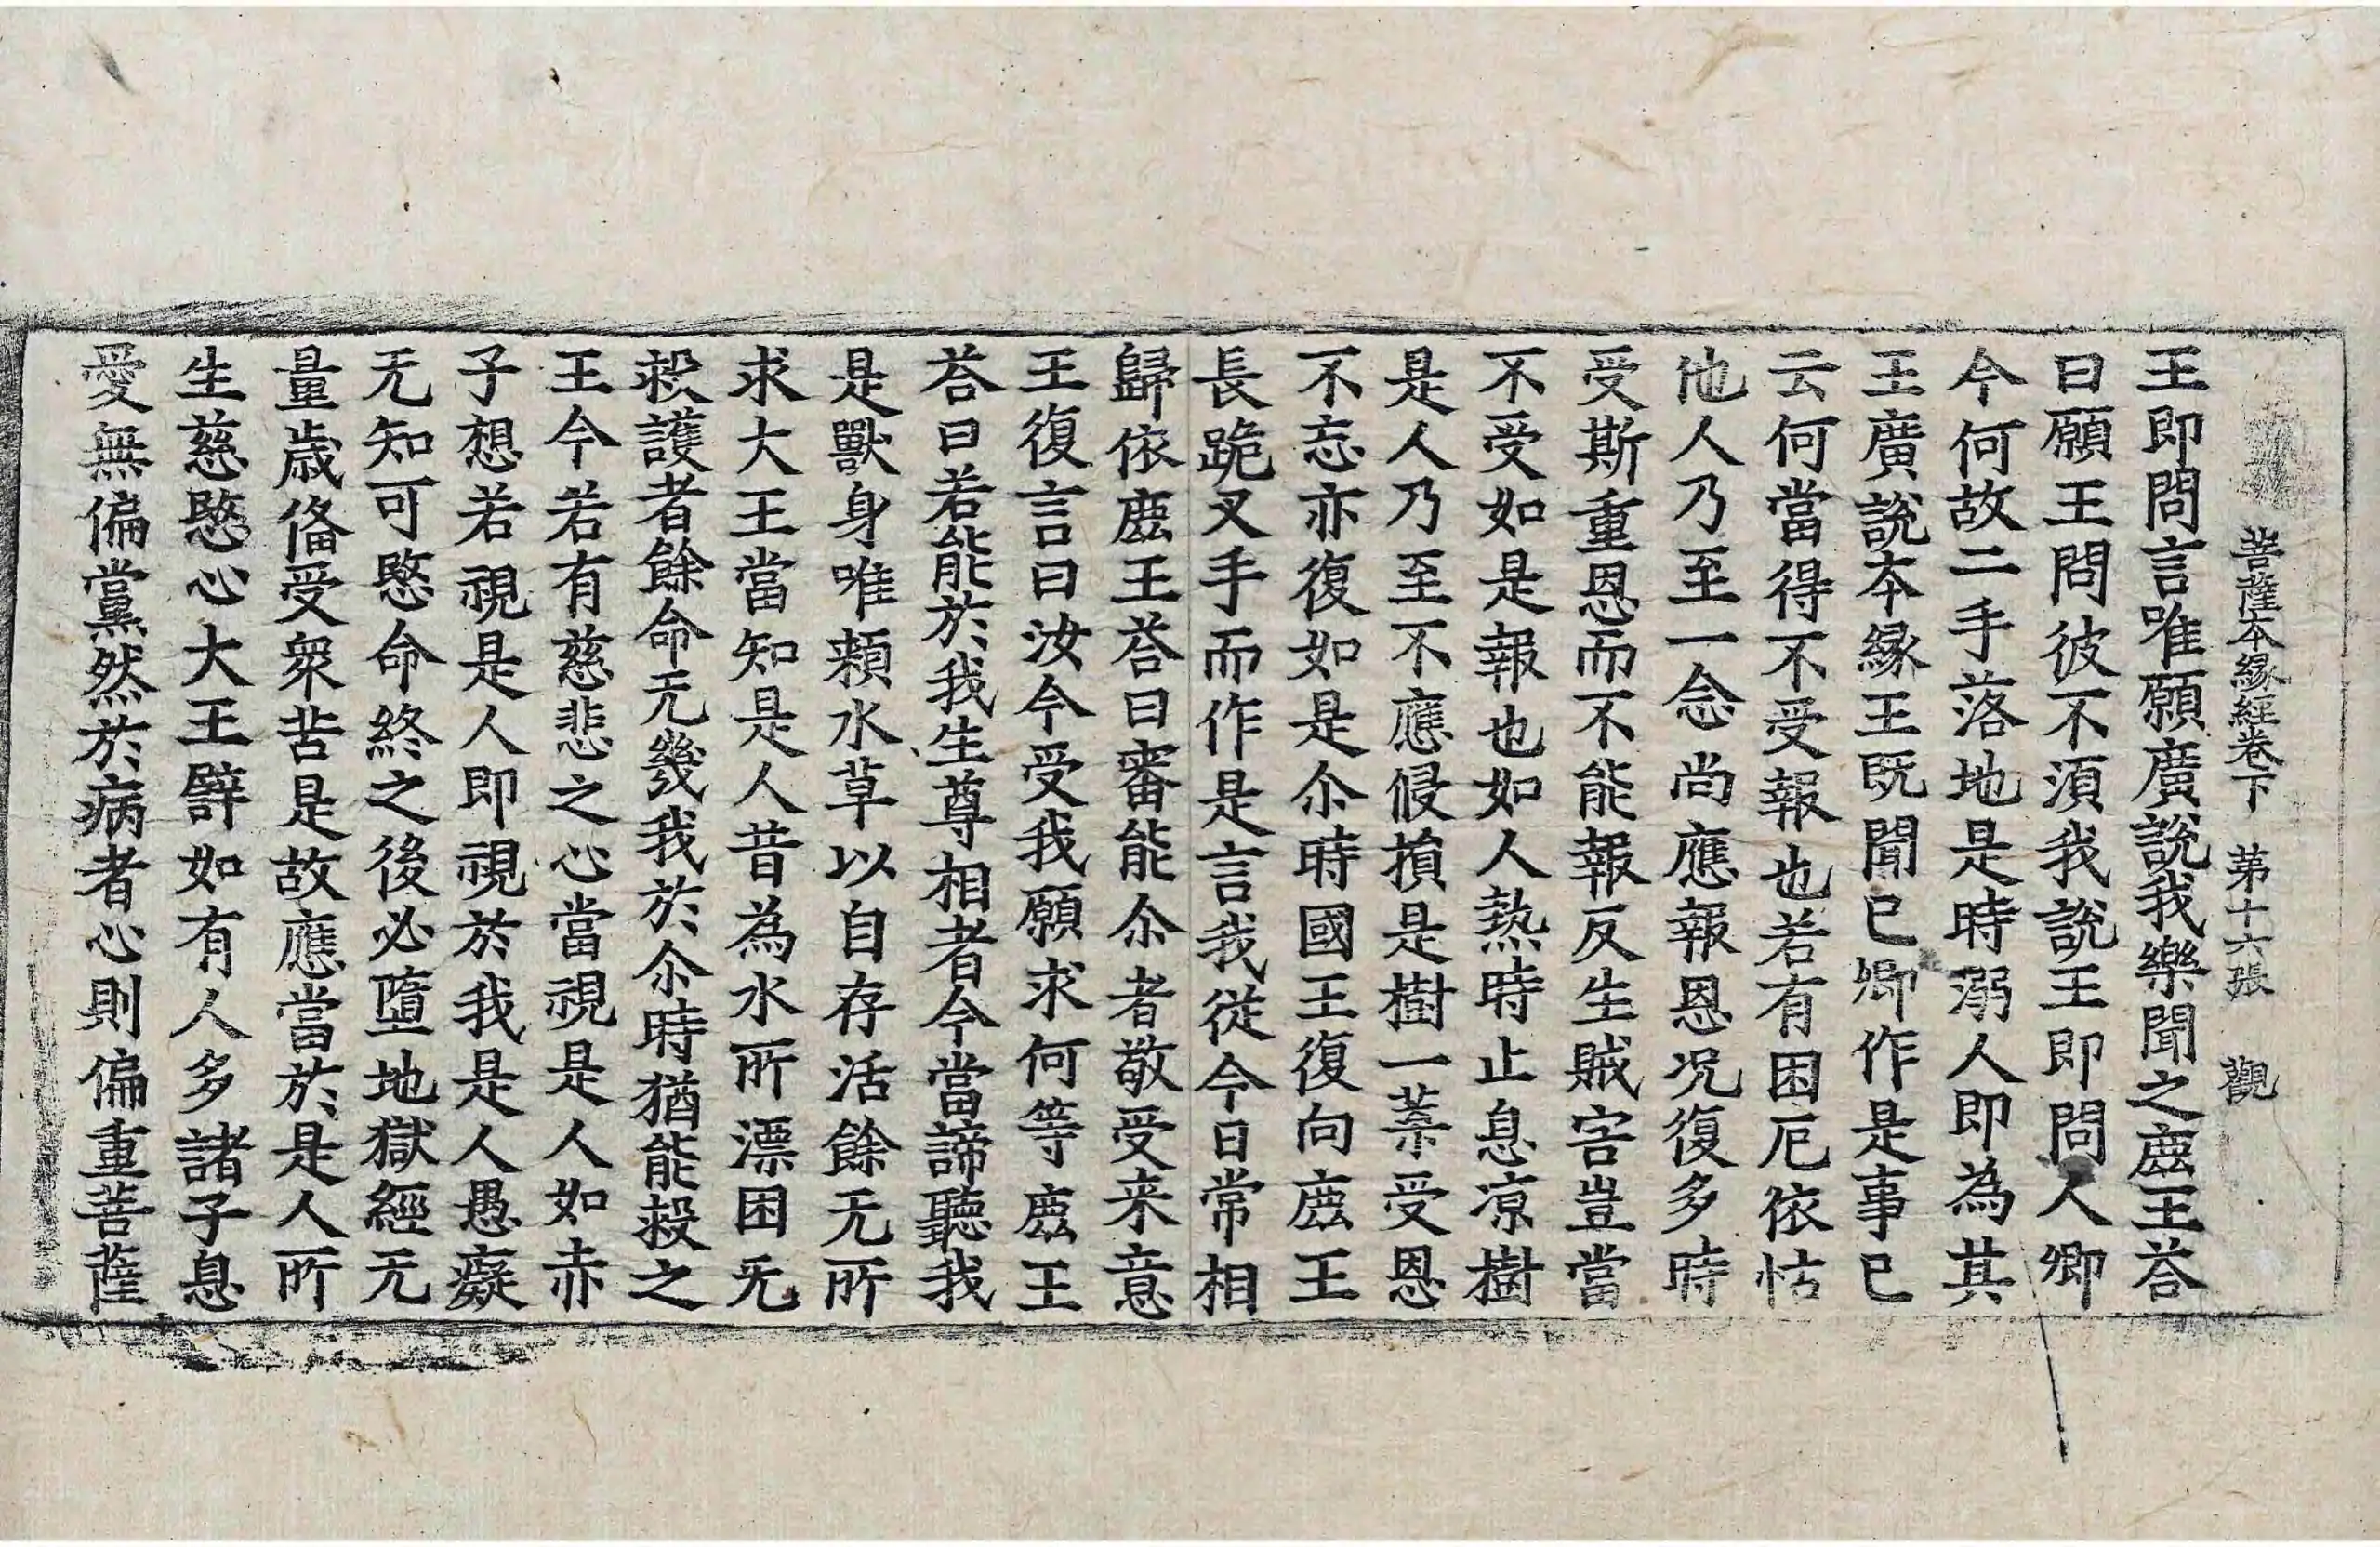 菩薩本緣經卷下 苐十六張 觀
王即問言唯願廣說我樂聞之䴡王荅
曰願王問彼不湏我說王即問人卿
今何故二手落地是時溺人即為其
王廣說本緣王既聞已卿作是事已
云何當得不受報也若有困厄依怙
他人乃至一念尚應報恩况復多時
受斯重恩而不能報反生賊害豈當
不受如是報也如人熱時止息凉樹
是人乃至不應侵損是樹一葉受恩
不忘亦復如是尒時國王復向䴡王
長跪叉手而作是言我從今日常相
歸依䴡王荅曰審能尒者敬受来意
王復言曰汝今受我願求何等䴡王
荅曰若能於我生尊相者今當諦聽我
是獸身唯頼水草以自存活餘无所
求大王當知是人昔為水所漂困无
救護者餘命无幾我於尒時猶能救之
王今若有慈悲之心當視是人如赤
子想若視是人即視於我是人愚癡
无知可愍命終之後必墮地獄經无
量歳俻受衆苦是故應當於是人所
生慈愍心大王譬如有人多諸子息
愛無偏黨然於病者心則偏重菩薩